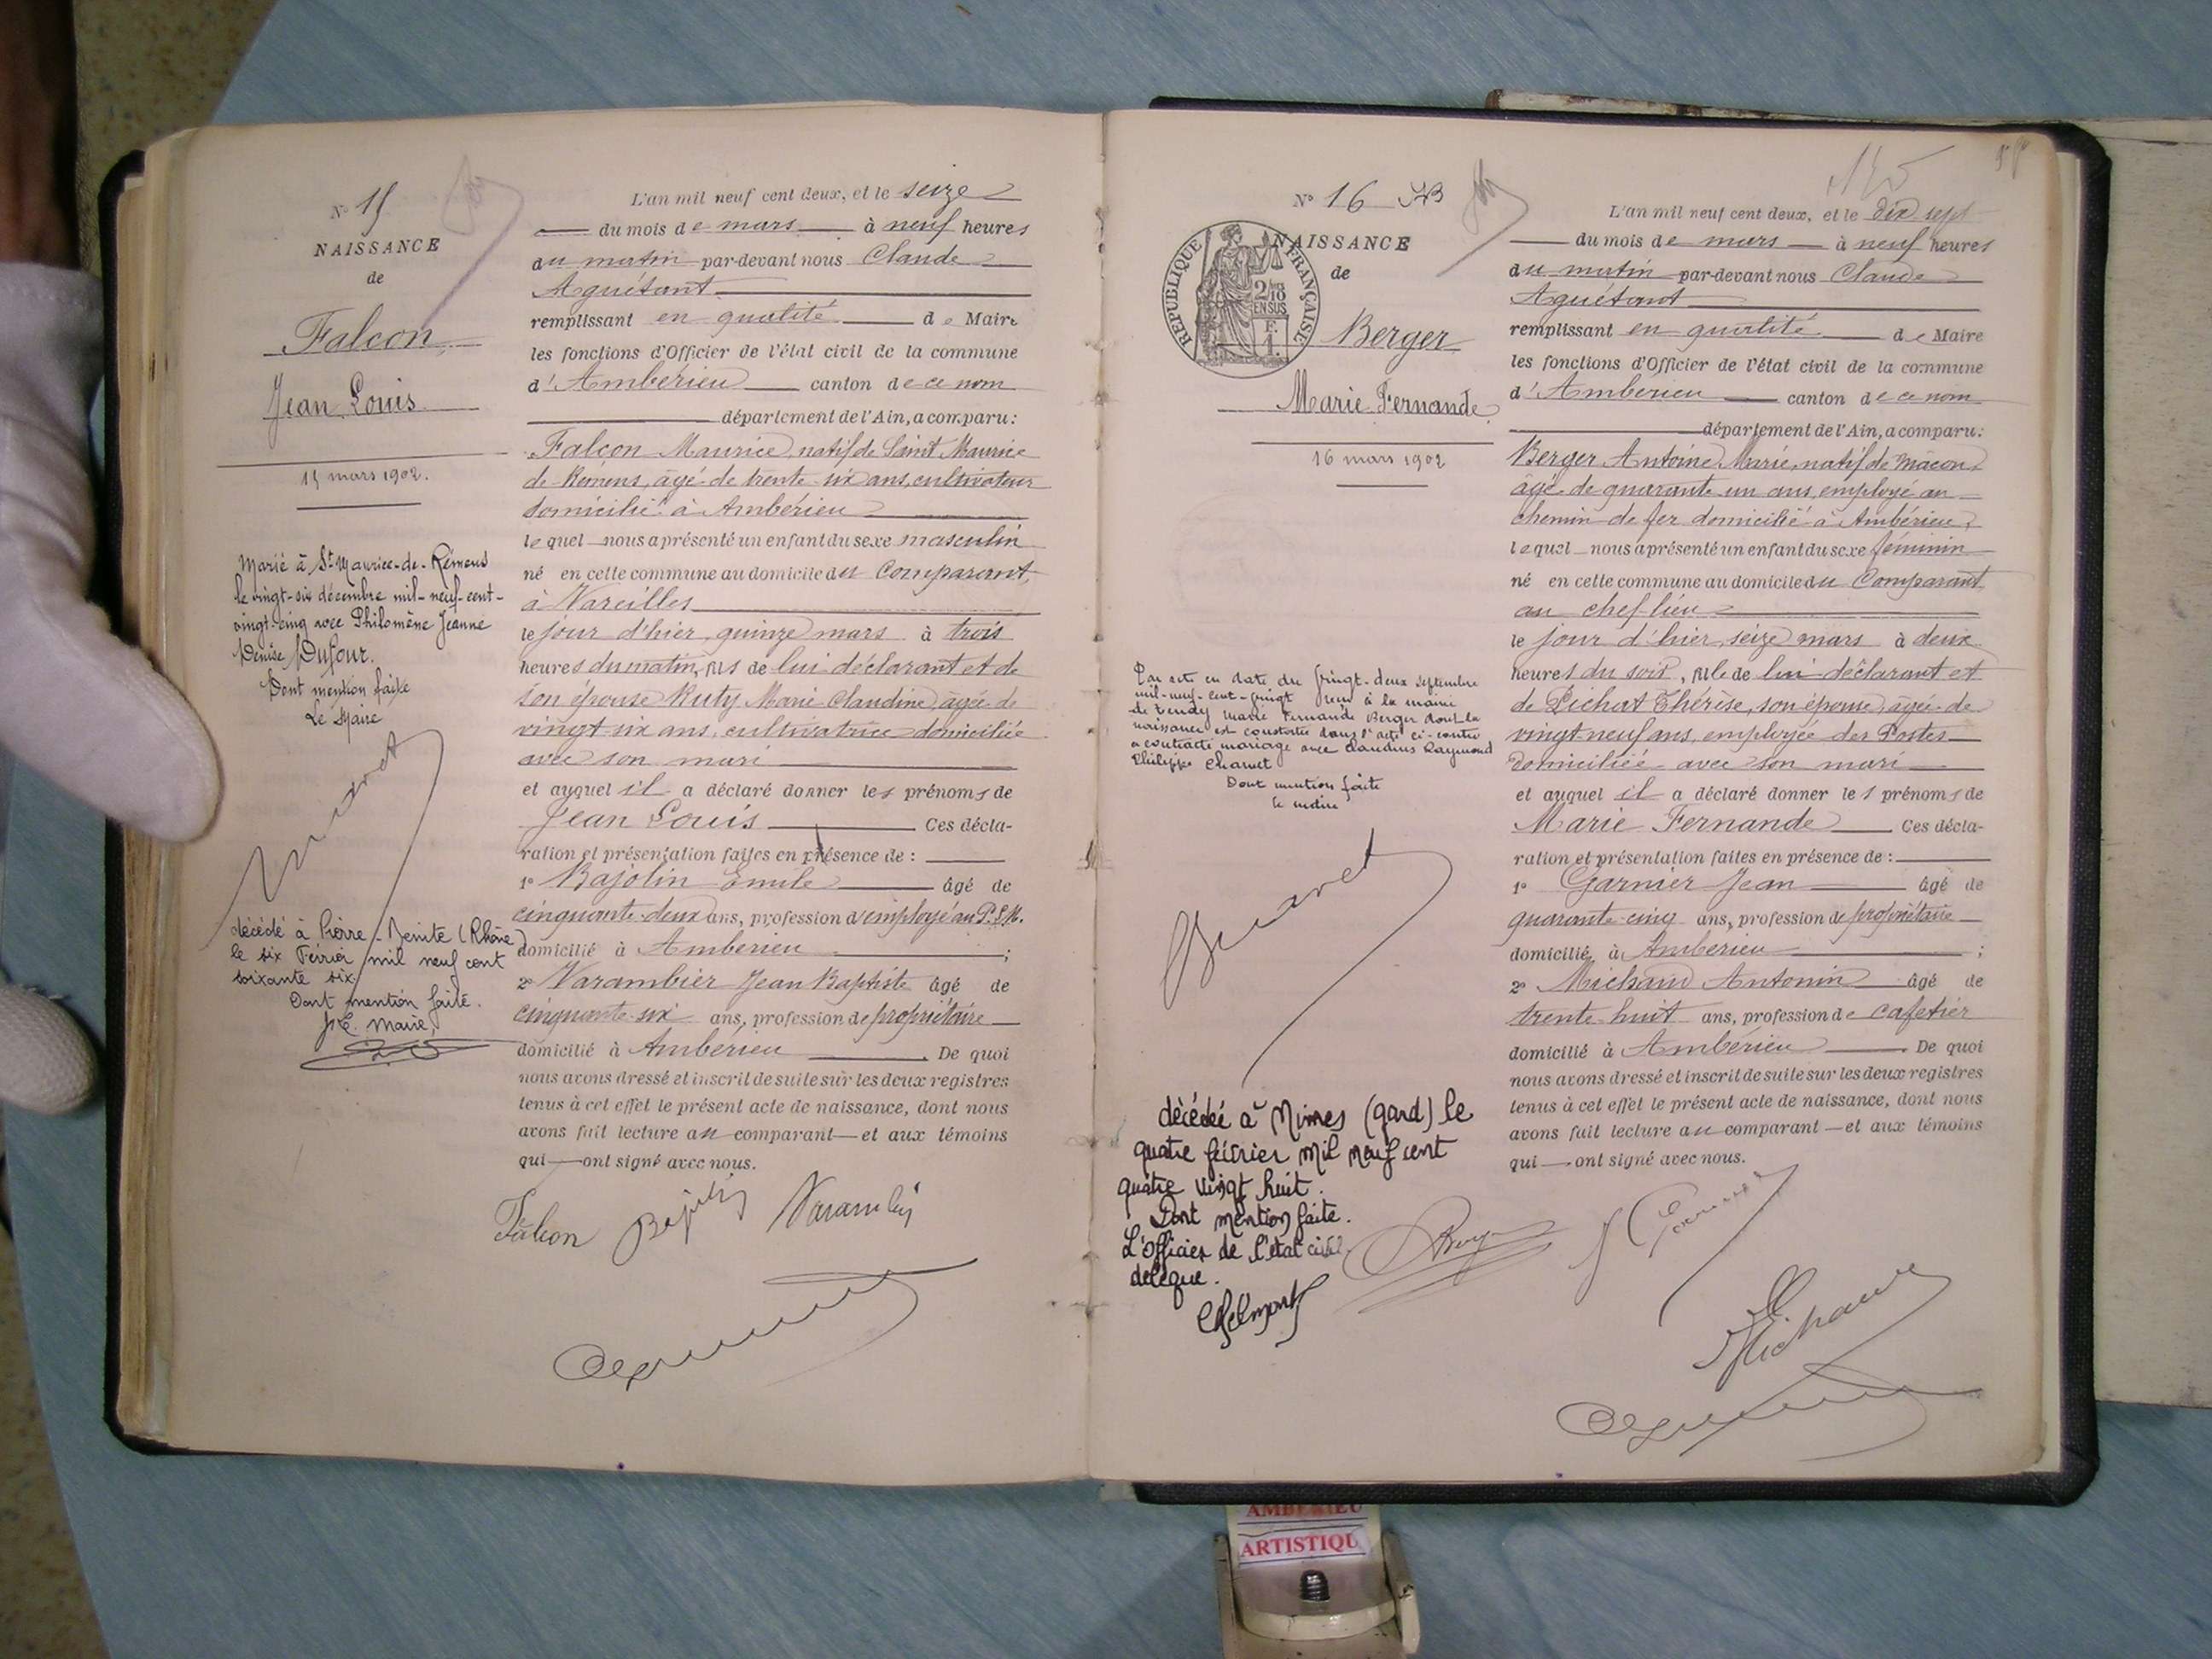 N° 15
NAISSANCE
de
Falcon
Jean Louis
15 mars 1902.
Marié à St Maurice-de-Rémens
le vingt-six décembre mil-neuf-cent-
vingt-cinq avec Philomène Jeanne
Denise Dufour.
Dont mention faite
Le Maire
décédé à Pierre-Bénite (Rhône)
le six Février mil neuf cent
soixante six
Dont mention faite.
Le Maire,
L'an mil neuf cent deux, et le seize
du mois de mars à neuf heures
du matin par-devant nous Claude
Aguétant
remplissant en qualité de Maire
les fonctions d'Officier de l'état civil de la commune
d'Ambérieu canton de ce nom
département de l'Ain, a comparu:
Falcon Maurice, natif de Saint Maurice
de Rémens, âgé de trente six ans, cultivateur
domicilié à Ambérieu
lequel nous a présenté un enfant du sexe masculin
né en cette commune au domicile du Comparant,
à Vareilles
le jour d'hier, quinze mars à trois
heures du matin, fils de lui déclarant et de
son épouse Ruty Marie Claudine, âgée de
vingt six ans, cultivatrice domiciliée
avec son mari
et auquel il a déclaré donner les prénoms de
Jean Louis Ces décla-
ration et présentation faites en présence de :
1° Bajolin Emile âgé de
cinquante-deux ans, profession d'employé au P.L.M.
domicilié à Amberieu ;
2° Varambier Jean Baptiste âgé de
cinquante-six ans, profession de propriétaire
domicilié à Ambérieu . De quoi
nous avons dressé et inscrit de suite sur les deux registres
tenus à cet effet le présent acte de naissance, dont nous
avons fait lecture au comparant et aux témoins
qui ont signé avec nous.
Falcon Bajolin Varambier
N° 16
NAISSANCE
de
REPUBLIQUE FRANÇAISE
2/10
EN SUS
F.
1.
Berger
Marie Fernande
16 mars 1902
Par acte en date du vingt-deux septembre
mil-neuf-cent-vingt reçu à la mairie
de Marie Fernande Berger dont la
naissance est constatée dans l'acte ci-contre
a contracté mariage avec Claudius Raymond
Philippe Charvet
Dont mention faite
le maire
décédée à Nimes (gard) le
quatre février mil neuf cent
quatre vingt huit.
Dont mention faite.
L'officier de l'état civil
délégué.
L'an mil neuf cent deux, et le dix sept
du mois de mars à neuf heures
du matin par-devant nous Claude
Aguétant
remplissant en qualité de Maire
les fonctions d'Officier de l'état civil de la commune
d'Amberieu canton de ce nom
département de l'Ain, a comparu:
Berger Antoine Marie, natif de Macon,
âgé de quarante un ans, employé au
chemin de fer domicilié à Ambérieu,
lequel nous a présenté un enfant du sexe féminin
né en cette commune au domicile du Comparant
au chef-lieu
le jour d'hier, seize mars à deux
heures du soir, fille de lui déclarant et
de Pichat Thérèse, son épouse, âgée de
vingt neuf ans, employée des Postes
Domiciliée avec son mari
et auquel il a déclaré donner les prénoms de
Marie Fernande Ces décla-
ration et présentation faites en présence de :
1° Garnier Jean âgé de
quarante-cinq ans, profession de propriétaire
domicilié à Amberieu ;
2° Michaud Antonin âgé de
trente-huit ans, profession de cafetier
domicilié à Ambérieu . De quoi
nous avons dressé et inscrit de suite sur les deux registres
tenus à cet effet le présent acte de naissance, dont nous
avons fait lecture au comparant et aux témoins
qui ont signé avec nous.
Michaud
AMBERIEU
ARTISTIQU